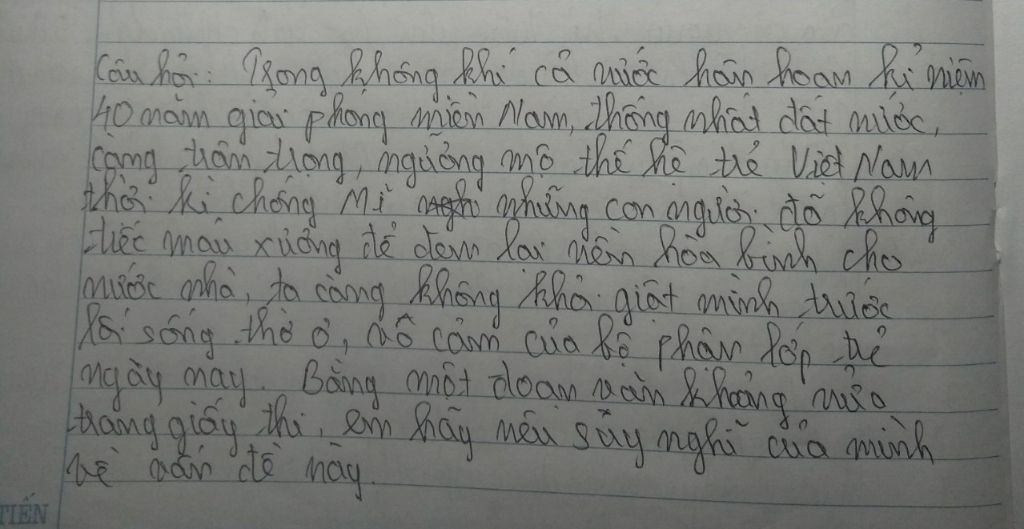 Câu hỏi: Trong không khí cả nước hân hoan kỉ niệm
40 năm giải phóng miền Nam, thống nhất đất nước,
càng trân trọng, ngưỡng mộ thế hệ trẻ Việt Nam
thời kì chống Mĩ những con người đã không
tiếc máu xương để đem lại nền hòa bình cho
nước nhà, ta càng không khỏi giật mình trước
lối sống thờ ơ, vô cảm của bộ phận lớp trẻ
ngày nay. Bằng một đoạn văn khoảng nửa
trang giấy thi, em hãy nêu suy nghĩ của mình
về vấn đề này.
TIẾN